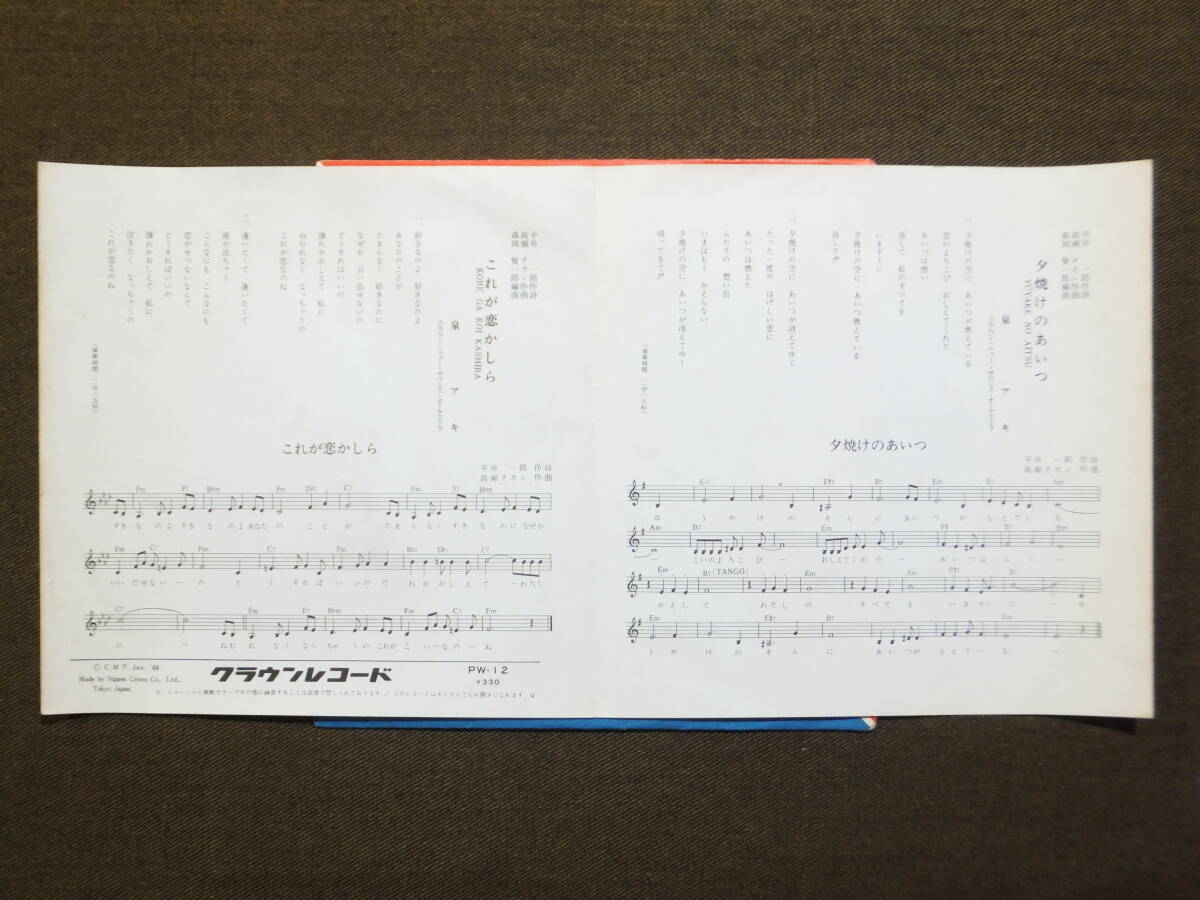 夕焼けのあいつ
YUYAKE NO AITSU
平井 一郎 作詩
高瀬 タカシ 作曲
森岡 賢一郎 編曲
泉 アキ
クラウン・ニュー・サウンズ・オーケストラ
一、夕焼けの空に あいつが燃えている
恋のよろこび おしえてくれた
あいつは憎い
返して 私のすべてを
いますぐに
夕焼けの空に あいつ燃えている
返して!!
二、夕焼けの空に あいつが消えてゆく
たった一度の はげしい恋に
あいつは燃えた
ふたりの 想い出
いまはもう かえらない
夕焼けの空に あいつが消えてゆく
帰ってきて!!
夕焼けのあいつ
平井 一郎 作詩
高瀬タカシ 作曲
Em F♯7 B7 Em E7 Am
ゆうやけのそらにあいつがもえている
Am B7 Em Em Am F♯ B7 Em
ーこいのよろこびー おしえてくれたー あいつはにくい
Em B7 [TANGO] Em Am F♯7 B7
かえして わたしの すべてを いますぐにーゆ
Em F♯7 B7 Em
うやけのそらに あいつがもえているー
これが恋かしら
KORE GA KOI KASHIRA
平井 一郎 作詩
高瀬 タカシ 作曲
森岡 賢一郎 編曲
泉 アキ
クラウン・ニュー・サウンズ・オーケストラ
一、好きなのよ 好きなのよ
あなたのことが
たまらなく 好きなのに
なぜか 云い出せないの
どうすればいいの
誰れかおしえて 私に
ねむれなく なっちゃうの
これが恋なのね
二、逢いたくて 逢いたくて
涙が出ちゃう
こんなにも こんなにも
恋がせつないなんて
どうすればいいの
誰れかおしえて 私に
泣きたく なっちゃうの
これが恋なのね
これが恋かしら
平井 一郎 作詩
高瀬タカシ 作曲
Fm F7 B♭m Fm D♭7 C7 Fm F7 B♭m
すきなのよすきなのよあなたのことが たまらなくすきなのになぜか
Fm C7 Fm C7 Fm B♭m D♭7 C7
いいだせないーの どうすればいいのだれかおしえてーわたし
C7 Fm F7 B♭m Fm C7 Fm
にー ねむれなくなっちゃうのこれがこいーなのーね
Ⓒ C.M.P. Jan. '68
Made by Nippon Crown Co., Ltd.,
Tokyo, Japan.
クラウンレコード
PW-12
¥330